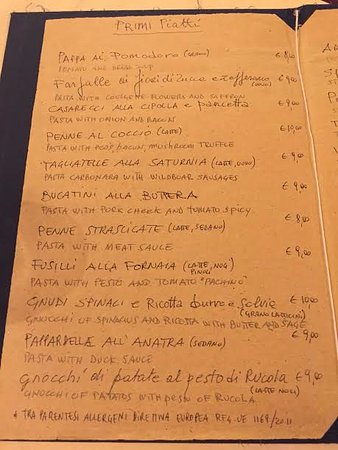 PRIMI PIATTI
PAPPA AL POMODORO (SEDANO) € 8,00
TOMATO AND BREAD SOUP
FARFALLE AI FIORI DI ZUCCA E ZAFFERANO € 9,00
PASTA WITH COURGETTE FLOWERS AND SAFFRON
CASARECCI ALLA CIPOLLA E PANCETTA € 9,00
PASTA WITH ONION AND BACON
PENNE AL COCCIO (LATTE) € 10,00
PASTA WITH BACON, MUSHROOM TRUFFLE
TAGLIATELLE ALLA SATURNIA (LATTE, UOVO) € 9,00
PASTA CARBONARA WITH WILDBOAR SAUSAGES
BUCATINI ALLA BUTTERA € 9,00
PASTA WITH PORK CHEEK AND TOMATO SPICY
PENNE STRASCICATE (LATTE, SEDANO) € 8,00
PASTA WITH MEAT SAUCE
FUSILLI ALLA FORNAIA (LATTE, NOCI € 9,00
PINOLI)
PASTA WITH PESTO AND TOMATO "PACHINO"
GNUDI SPINACI E RICOTTA BURRO E SALVIA € 10,00
(GRANO, LATTICINI)
GNOCCHI OF SPINACIUS AND RICOTTA WITH BUTTER AND SAGE
PAPARDELLE ALL'ANATRA (SEDANO) € 9,00
PASTA WITH DUCK SAUCE
GNOCCHI DI PATATE AL PESTO DI RUCOLA € 9,00
(LATTE NOCI)
GNOCCHI OF PATATOS WITH PESTO OF RUCOLA
* TRA PARENTESI ALLERGENI DIRETTIVA EUROPEA REG-UE 1169/2011